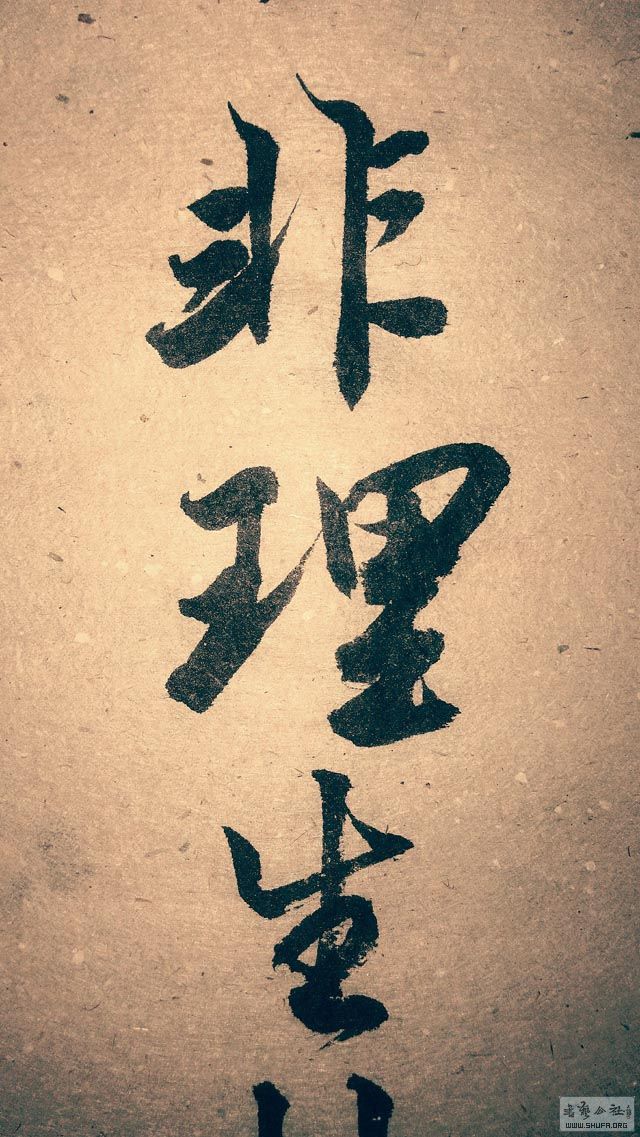 非理生
書藝公社
WWW.SHUFA.ORG